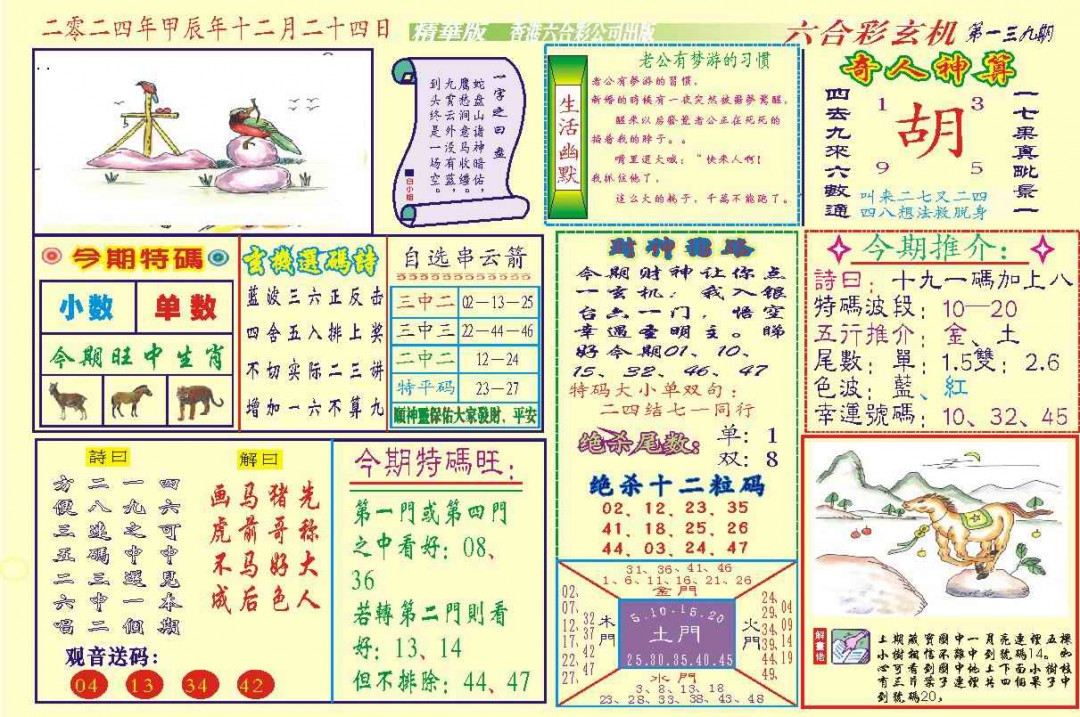 二零二四年甲辰年十二月二十四日
精華版
香港六合彩公司出版
六合彩玄机
第一三九期
一字之曰盘
蛇盘山诸神暗佑，
鹰愁涧意马收缰。
九霄云外没有蓝
到头终是一场空。
白小姐
生活幽默
老公有梦游的习惯
老公有夢游的習慣，
新婚的時候有一夜突然被噩夢驚醒，
醒来以后發覺老公正在死死的
掐着我的脖子。。
嘴里還大喊："快来人啊！
我抓住他了，
这么大的耗子，千萬不能跑了。
奇人神算
四去九來六數通
1
3
胡
9
5
一七果真毗景一
叫来二七又二四
四八想法救脱身
今期特碼
小数
单数
今期旺中生肖
玄機選碼詩
蓝波三六正反击
四舍五入排上奖
不切实际二三讲
增加一六不算九
自选串云箭
三中二
02—13—25
三中三
22—44—46
二中二
12—24
特平码
23—27
願神靈保佑大家發財、平安
財神
今期财神让你点
一玄机：我入银
台六一门，悟空
幸遇圣明主。睇
好今期01、10、
15、32、46、47
特码大小单双句：
二四结七一同行
绝杀尾数：
单：1
双：8
绝杀十二粒码
02、12、23、35
41、18、25、26
44、03、24、47
今期推介：
詩曰：十九一碼加上八
特碼波段：10—20
五行推介：金、土
尾數：單：1.5雙：2.6
色波：藍、紅
幸運號碼：10、32、45
詩曰
四六可中中見本期
一九之中選一個
二八連碼三中二
方便三五二六唱
解曰
先称大人
猪哥好色
马前马后
画虎不成
观音送码：
04
13
34
42
今期特碼旺：
第一門或第四門
之中看好：08、
36
若轉第二門則看
好：13、14
但不排除：44、47
31、36、41、46
1、6、11、16、21、26
金門
02、07、12、17、22、27、
32、37、42、47
木門
5.10.15.20
土門
25.30.35.40.45
火門
24、29、34、39、44、49、
04、09、14、19
水門
3、8、13、18
23、28、33、38、43、48
解畫信
上期藏寶圖中一月亮連裡五棵
小樹相信不難中到號碼14。如
心可看到圖中地上下面小樹枝
有三片葉子連裡共四個果子中
到號碼20，